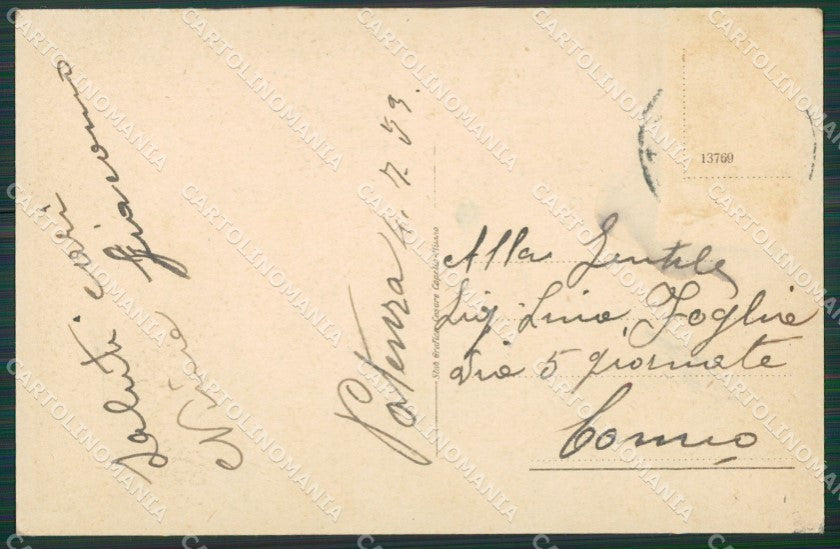 Saluti cari
Nino Giacomo
Potenza 11.7.33.
Stab Grafico Cesare Capello-Milano
13769
Alla Gentile
Sig. Lina Foglia
Via 5 giornate
Como
CARTOLINOMANIA